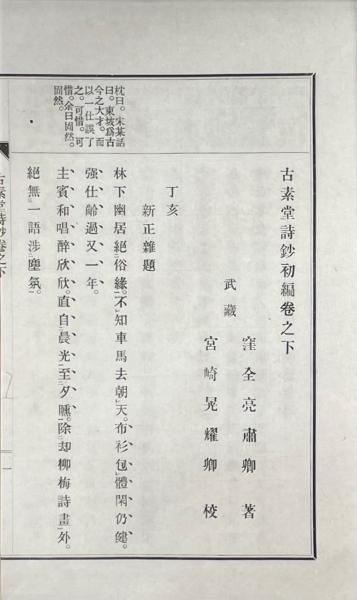 古素堂詩鈔初編卷之下
武藏
窪全亮肅卿著
宮崎晃耀卿校
丁亥
新正雜題
林下幽居絕俗緣。不知車馬去朝天。布衫包體閑仍健。
强仕齡過又一年。
主賓和唱醉欣欣。直自晨光至夕曛。除却柳梅詩畫外。
絕無一語涉塵氛。
枕曰。宋某話
曰。東坡爲古
今之大才。而
以一仕誤了
之。可惜。可
惜。余曰。固然。
固然。
古素堂詩鈔卷之下
一